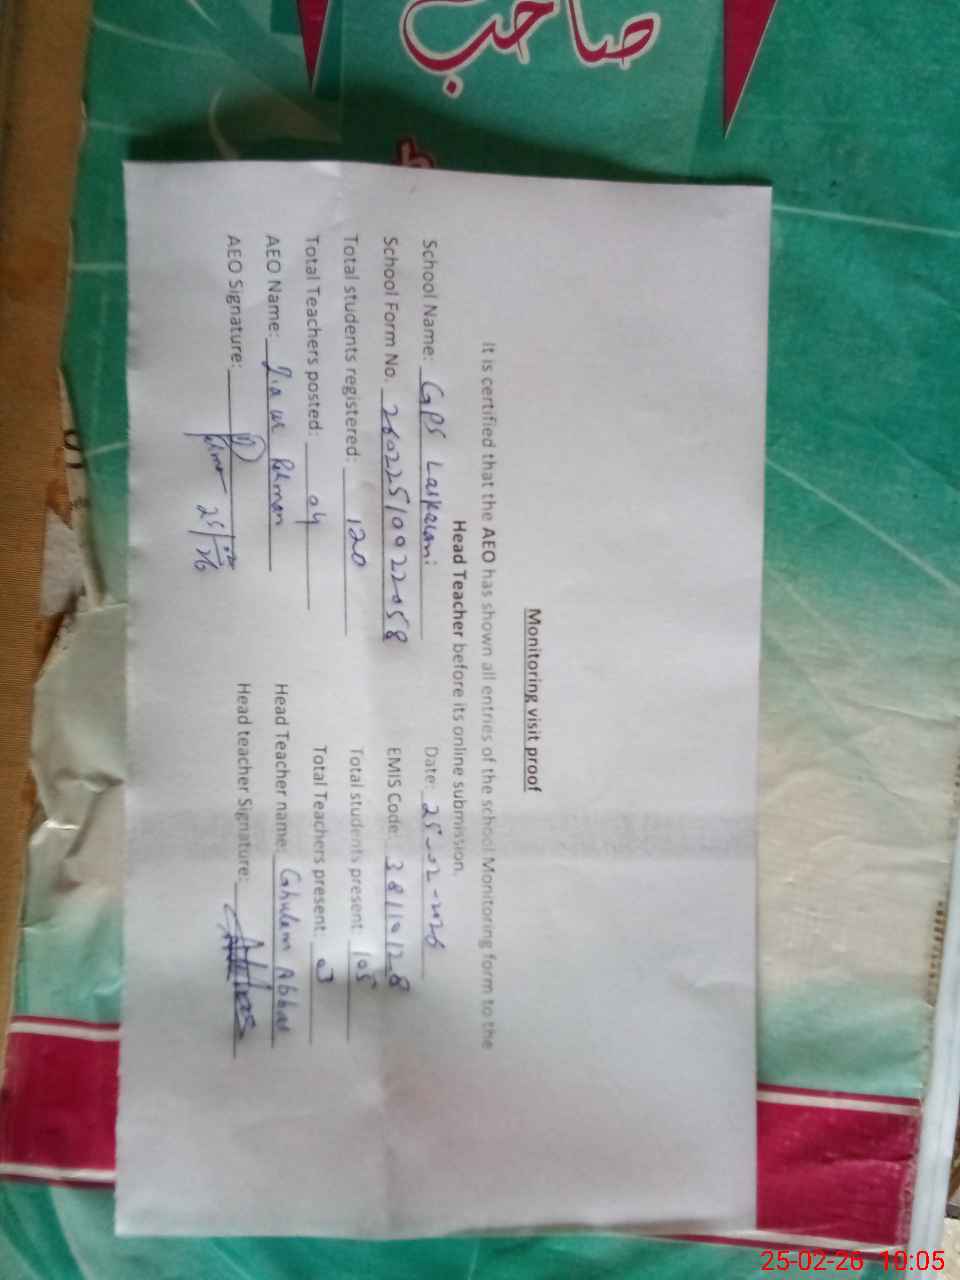 صاحب
Monitoring visit proof
It is certified that the AEO has shown all entries of the school Monitoring form to the
Head Teacher before its online submission.
School Name: GPS Date: 25-02-2026
School Form No. 26022510022058 EMIS Code: 38110128
Total students registered: 120 Total students present: 105
Total Teachers posted: 04 Total Teachers present: 03
AEO Name: Zia ur Rehman Head Teacher name: Ghulam Abbas
AEO Signature: Head teacher Signature:
25-02-26 10:05